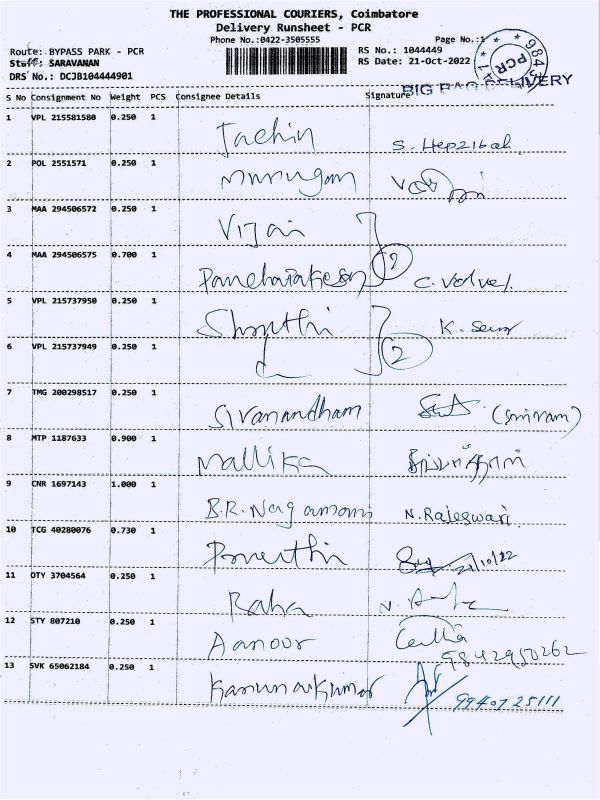 THE PROFESSIONAL COURIERS, Coimbatore
Delivery Runsheet - PCR
Phone No.:0422-3505555
Page No.:1
Route: BYPASS PARK - PCR
RS No.: 1044449
Staff: SARAVANAN
RS Date: 21-Oct-2022
DRS No.: DCJB104444901
PCR
BIG BAG DELIVERY
S No Consignment No Weight PCS Consignee Details Signature
1 VPL 215581580 0.250 1 Jachin S. Hepzibah
2 POL 2551571 0.250 1 Murugan
3 MAA 294506572 0.250 1 Vijai
4 MAA 294506575 0.700 1 C. Vel
5 VPL 215737950 0.250 1 Shruthi K.
6 VPL 215737949 0.250 1 2
7 TMG 200298517 0.250 1 Sivanandham (Sriram)
8 MTP 1187633 0.900 1 Mallika
9 CNR 1697143 1.000 1 B.R. Nagamani N. Rajeswari
10 TCG 40280076 0.730 1 21/10/22
11 OTY 3704564 0.250 1 Raha
12 STY 807210 0.250 1 Aanoor 9842950262
13 SVK 65062184 0.250 1 Karunaikumar 9940725111